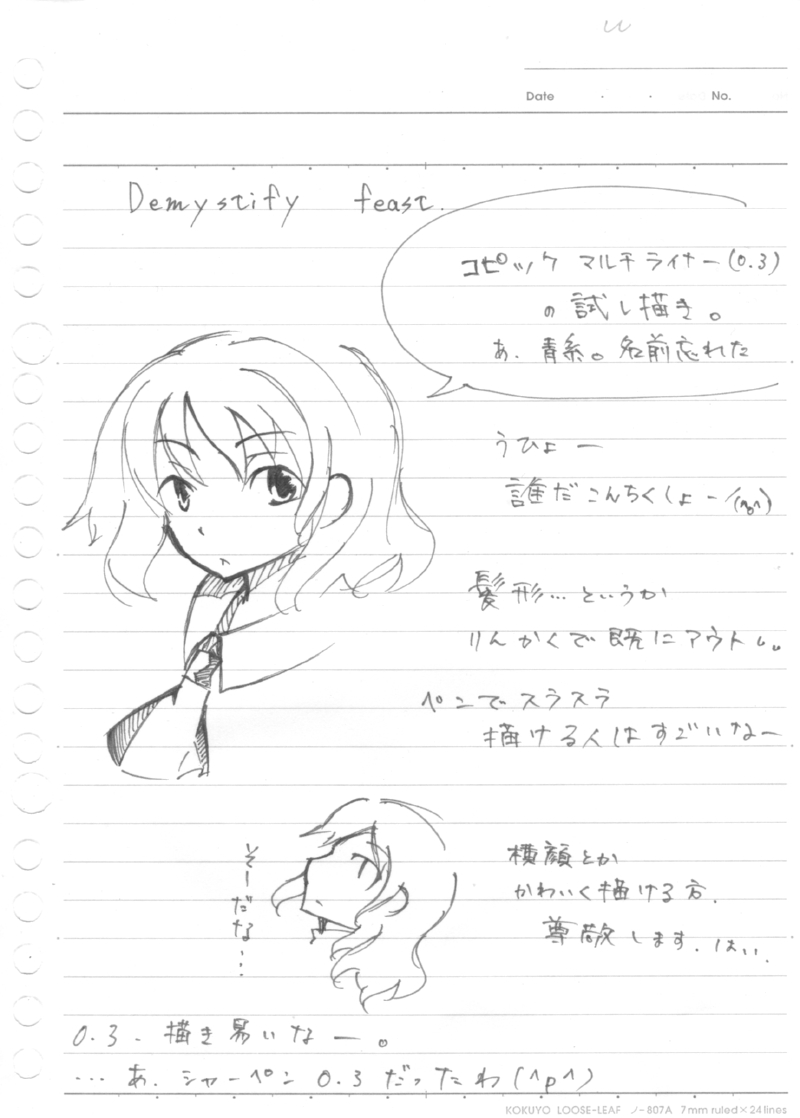 Date ・ ・ No.
Demystify feast.
コピック マルチライナー(0.3)
の試し描き。
あ、青系。名前忘れた
うひょー
誰だこんちくしょー/(^o^)
髪形…というか
りんかくで既にアウトし。
ペンでスラスラ
描ける人はすごいなー
そーだな…
横顔とか
かわいく描ける方、
尊敬します。はい。
0.3、描き易いなー。
…あ、シャーペン0.3だったわ(^p^)
KOKUYO LOOSE-LEAF ノ-807A 7mm ruled×24lines